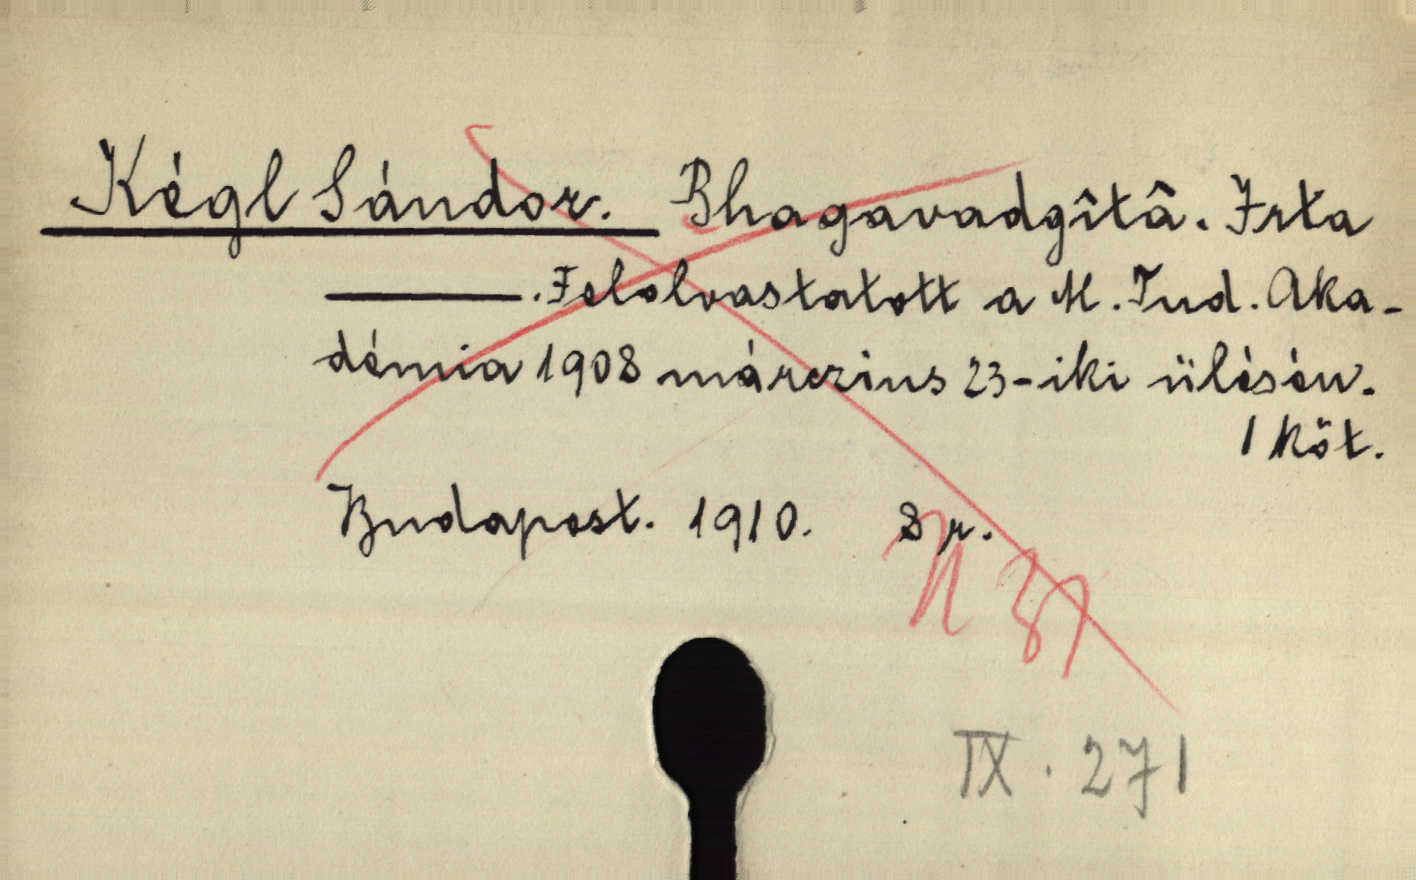 Kégl Sándor. Bhagavadgîtâ. Irta
———. Felolvastatott a M. Tud. Aka-
démia 1908 márczius 23-iki ülésén.
1 köt.
Budapest. 1910. 8 r.
N 37
IX. 271